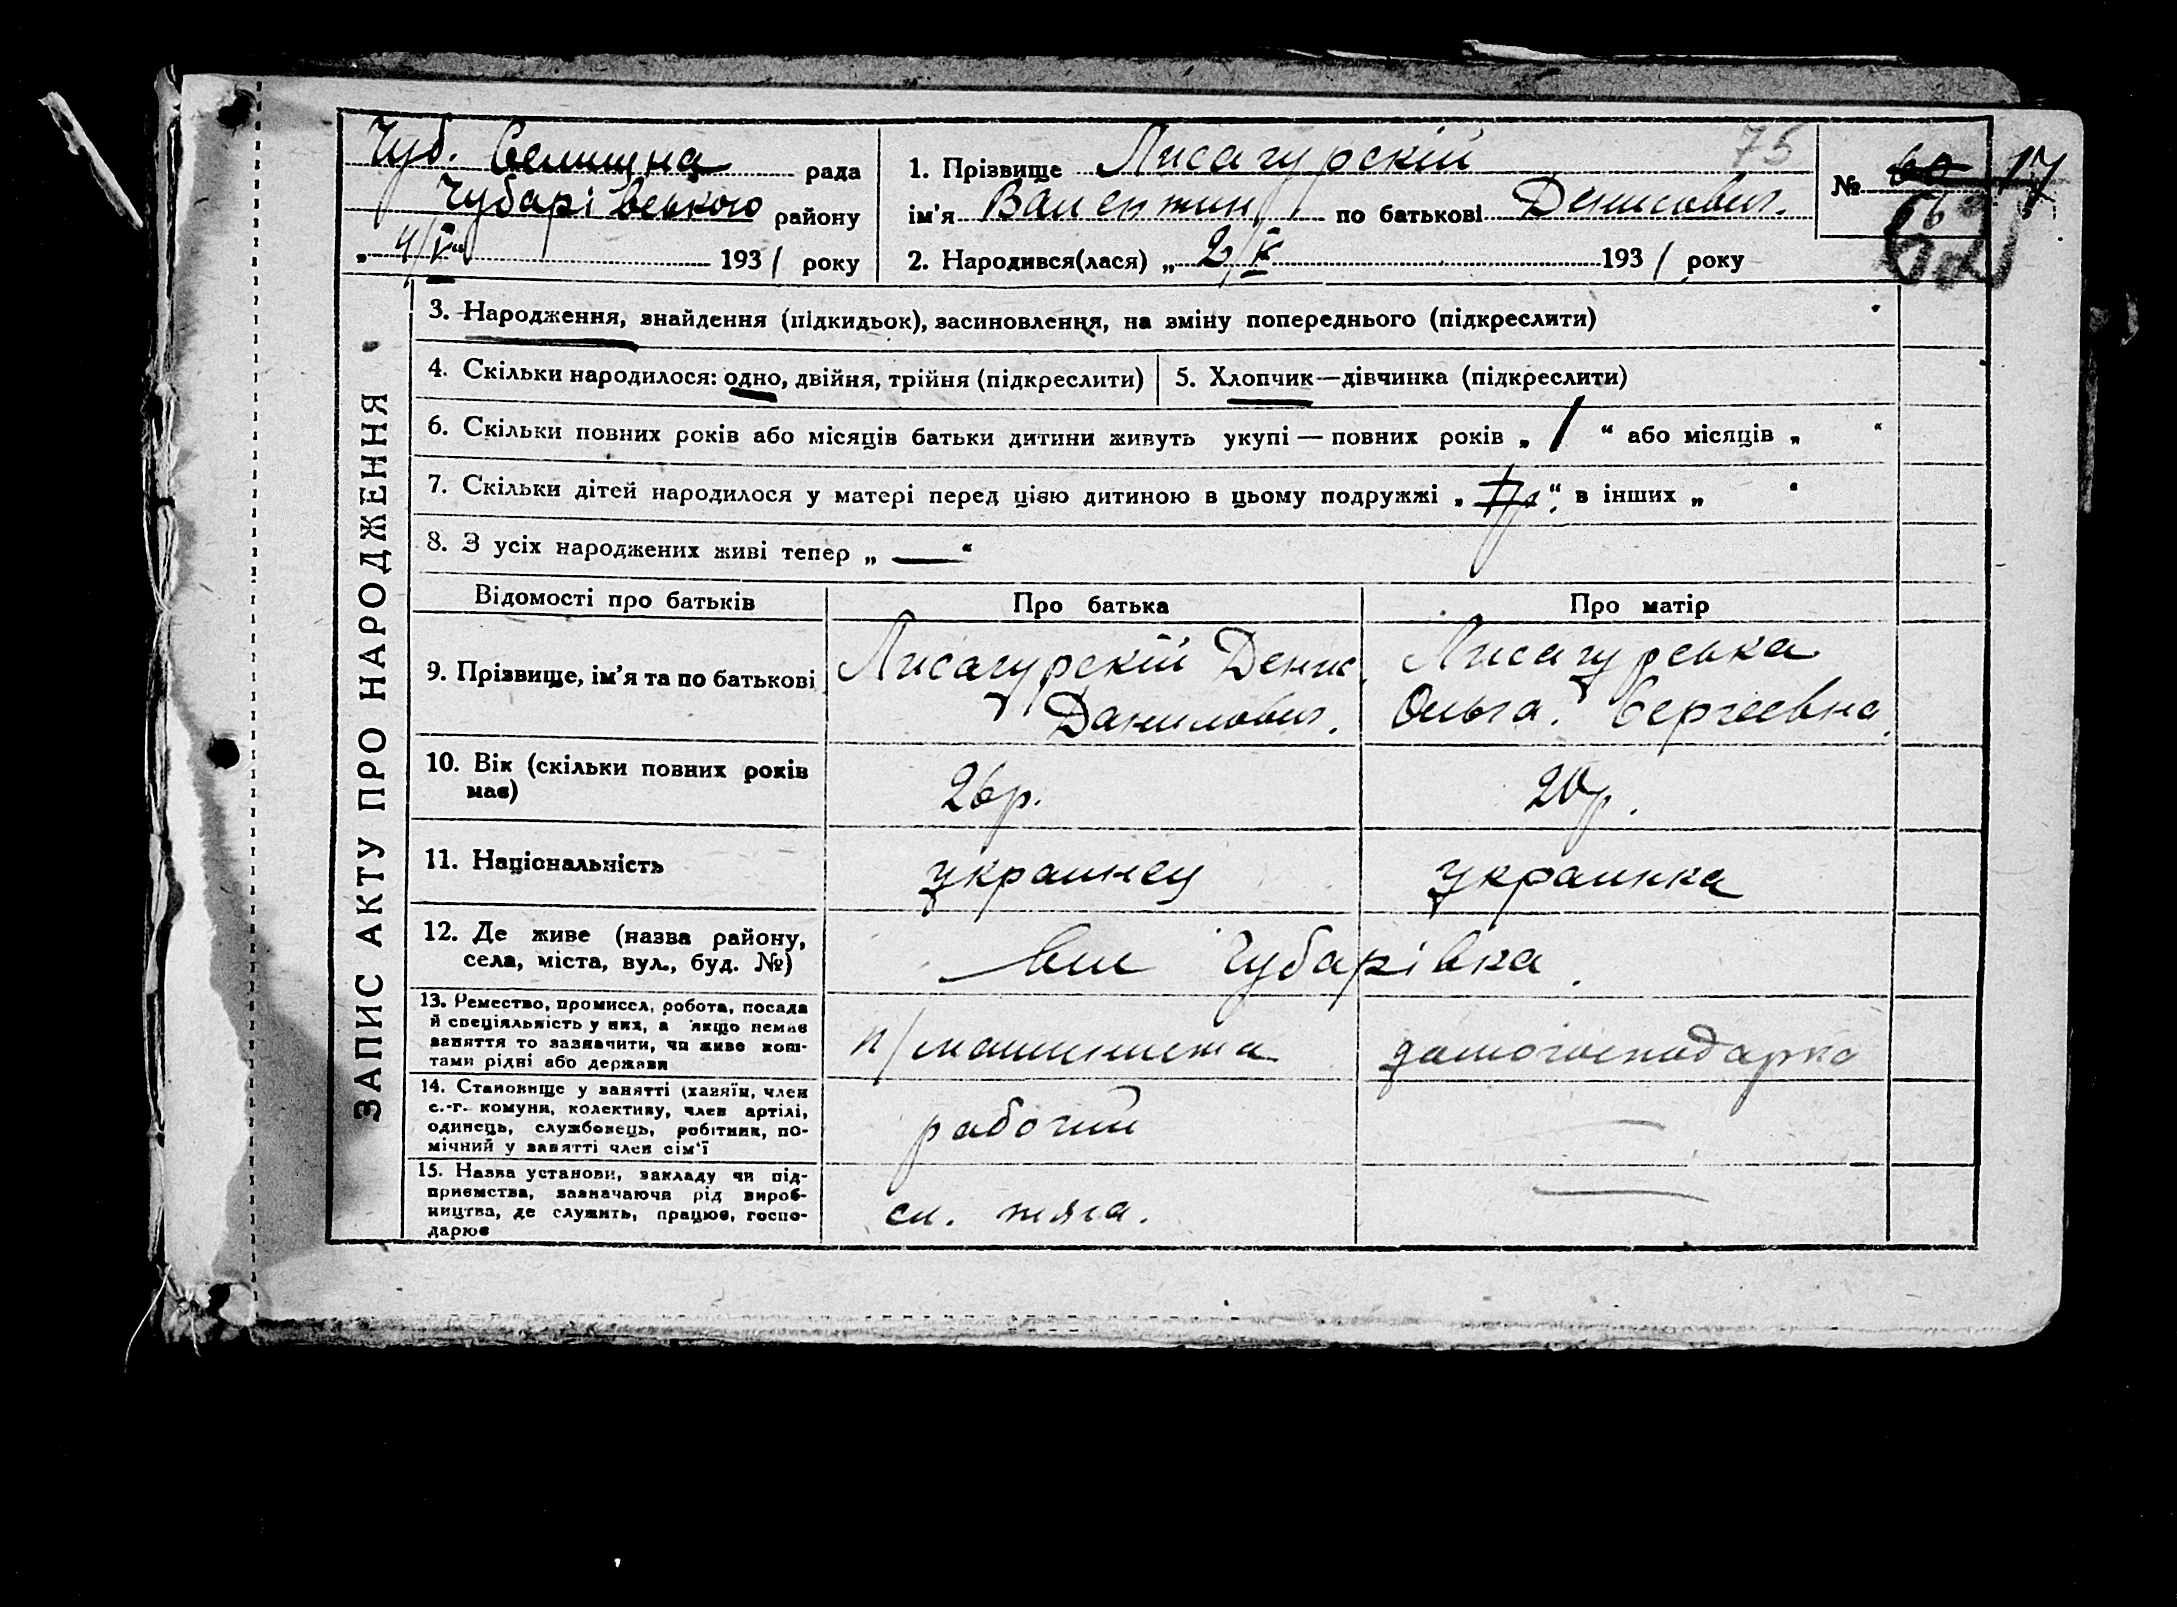 Чуб. Селищна рада
Чубарівського району
„ 4/V “ 1931 року
1. Прізвище Лисагурскій 75
ім'я Валентин по батькові Денисович.
2. Народився(лася) „ 2/V 1931 року
№ 17
3. Народження, знайдення (підкидьок), засиновлення, на зміну попереднього (підкреслити)
4. Скільки народилося: одно, двійня, трійня (підкреслити) 5. Хлопчик—дівчинка (підкреслити)
6. Скільки повних років або місяців батьки дитини живуть укупі — повних років „ 1 “ або місяців „ “
7. Скільки дітей народилося у матері перед цією дитиною в цьому подружжі „ “, в інших „ “
8. З усіх народжених живі тепер „ — “
ЗАПИС АКТУ ПРО НАРОДЖЕННЯ
Відомості про батьків Про батька Про матір
9. Прізвище, ім'я та по батькові
Лисагурскій Денис
Данилович.
Лисагурська
Ольга. Сергеевна.
10. Вік (скільки повних років
має)
26 р.
20 р.
11. Національність
украинец
украинка
12. Де живе (назва району,
села, міста, вул., буд. №)
Чубарівка.
13. Ремество, промисел, робота, посада
й спеціяльність у них, а якщо немає
заняття то зазначити, чи живе кош-
тами рідні або держави
п/машиниста
домогосподарка
14. Становище у занятті (хазяїн, член
с.-г. комуни, колективу, член артілі,
одинець, службовець, робітник, по-
мічний у занятті член сім'ї
рабочий
—
15. Назва установи, закладу чи під-
приємства, зазначаючи рід вироб-
ництва, де служить, працює, госпо-
дарює
сл. тяга.
—